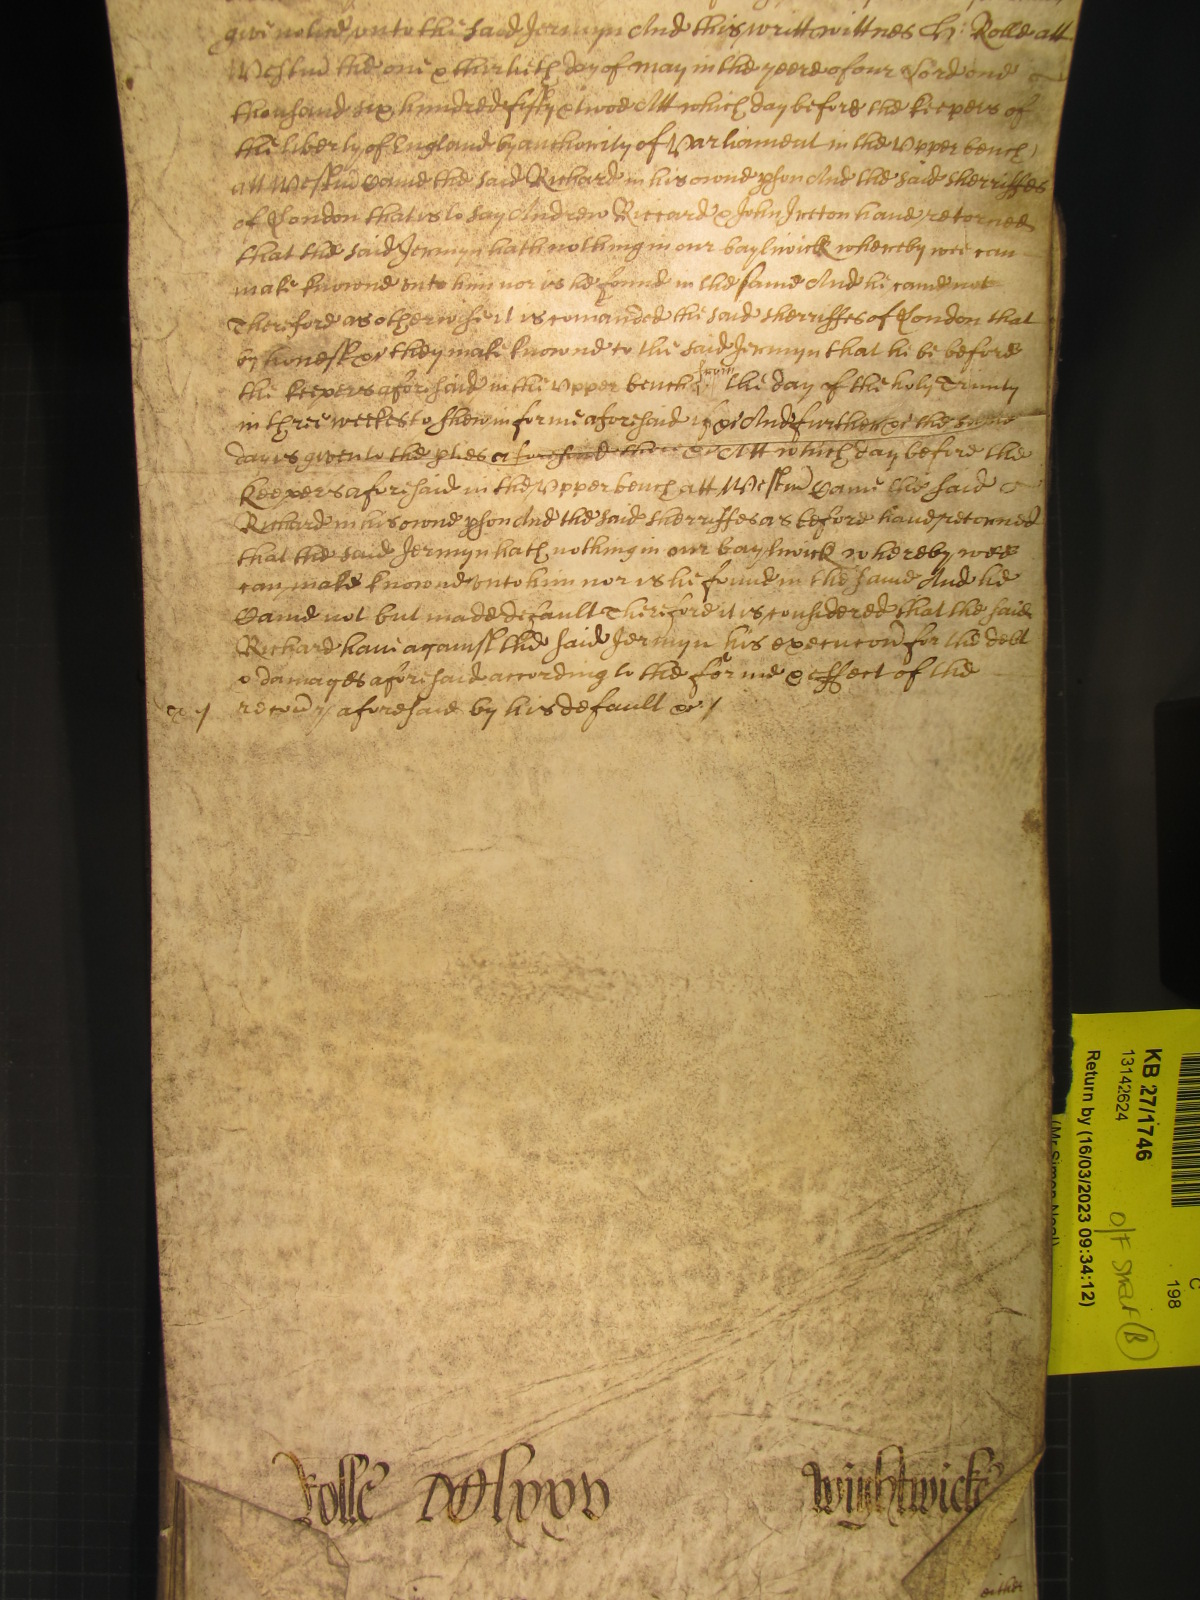 give notice unto the said Jermyn And this writt wittnes H: Rolle att
Westm the one & thirtieth day of May in the yeere of our Lord one
thousand six hundred fifty & twoe Att which day before the keepers of
the liberty of England by authority of Parliament in the Upper bench
att Westm came the said Richard in his owne pson And the said Sherriffes
of London that is to say Andrew Riccard & John Ireton have retorned
that the said Jermyn hath nothing in our bayliwick whereby wee can
make knowne unto him nor is he found in the same And he came not
Therefore as otherwise it is comanded the said Sherriffes of London that
by honest &c they make knowne to the said Jermyn that he be before
the keepers aforesaid in the Upper bench from the day of the holy Trinity
in three weekes to shew in forme aforesaid if &c And further &c the same
day is given to the pties aforesaid there &c Att which day before the
Keepers aforesaid in the Upper bench att Westm came the said
Richard in his owne pson And the said Sherriffes as before have retorned
that the said Jermyn hath nothing in our bayliwick whereby wee
can make knowne unto him nor is he found in the same And he
Came not but made default Therefore it is considered that the said
Richard have against the said Jermyn his execucon for the debt
& damages aforesaid according to the forme & effect of the
recovy aforesaid by his default &c /
Rolle lxxv
Wightwicke
either
KB 27/1746
13142624
Return by (16/03/2023 09:34:12)
(Mr Simon Neal)
C
198
O/F Street (B)